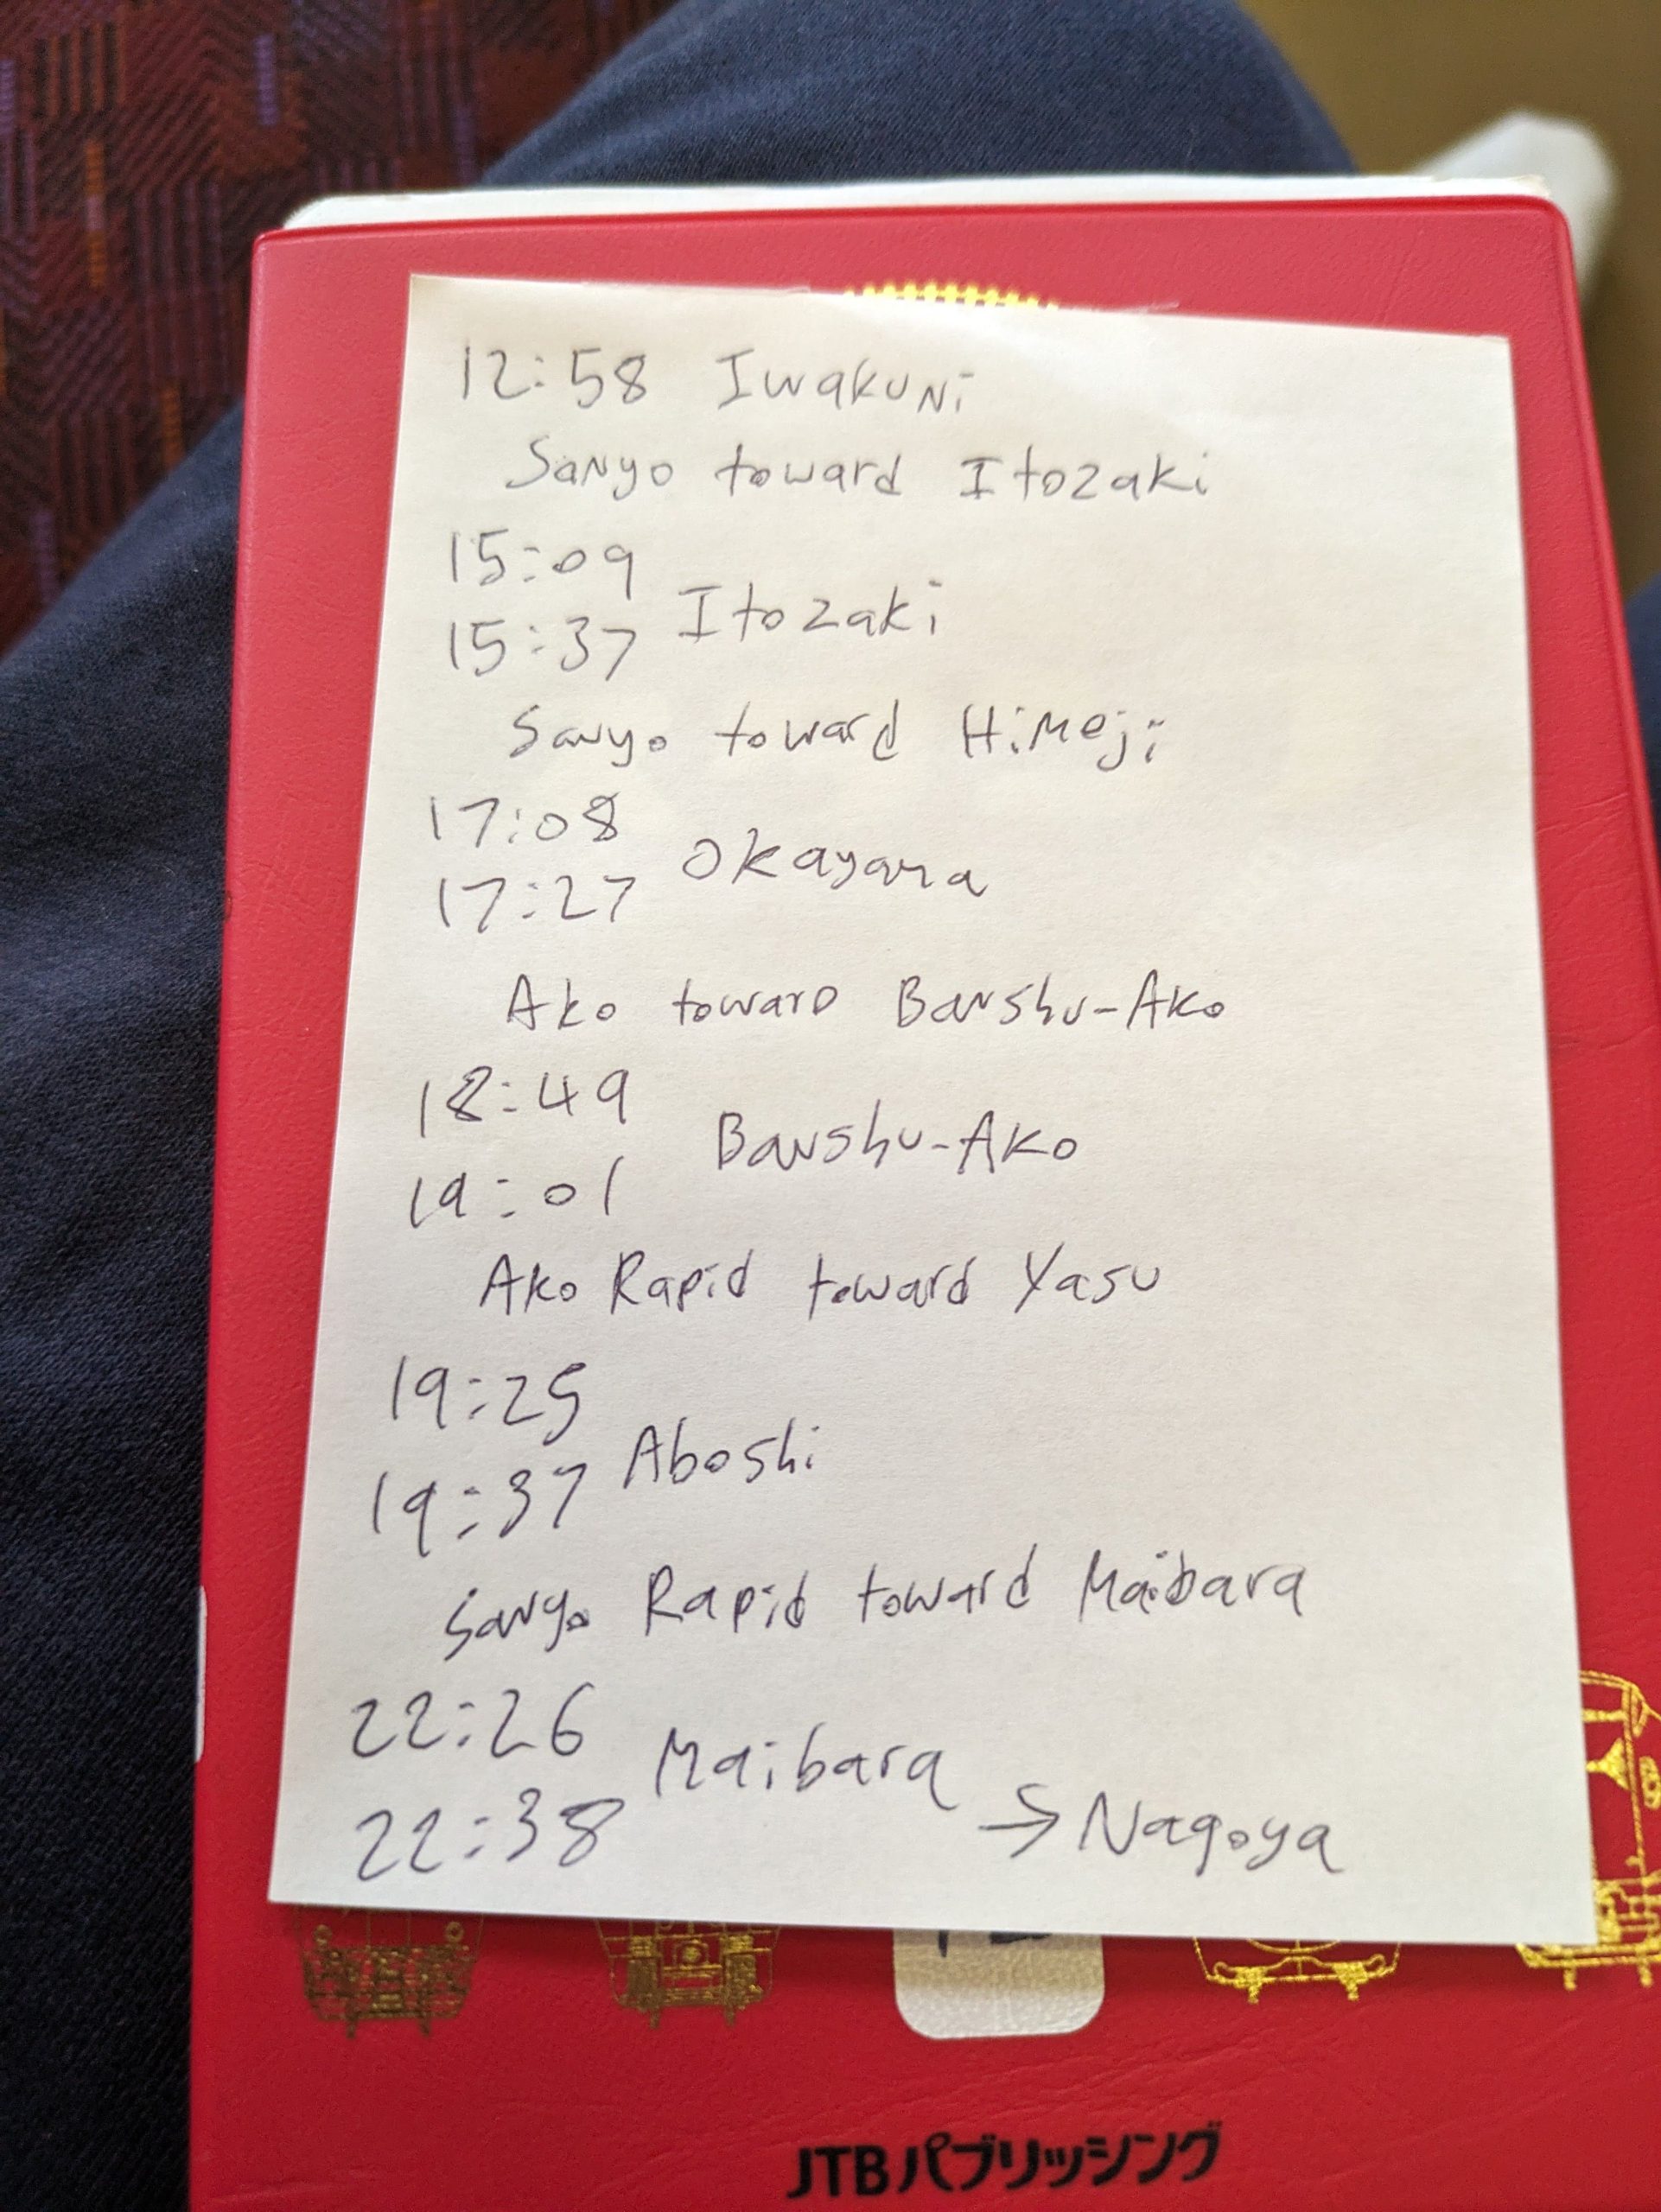 12:58 Iwakuni
Sanyo toward Itozaki
15:09
15:37 Itozaki
Sanyo toward Himeji
17:08
17:27 Okayama
Ako toward Banshu-Ako
18:49
Banshu-Ako
19:01
Ako Rapid toward Yasu
19:25
19:37 Aboshi
Sanyo Rapid toward Maibara
22:26
Maibara
22:38 → Nagoya
JTBパブリッシング